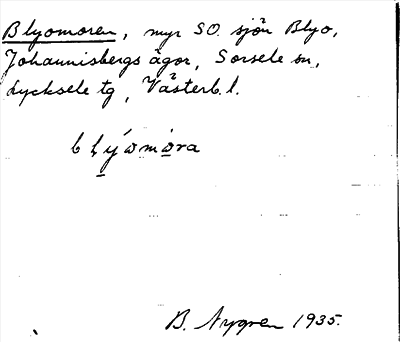 Blyomoren, myr SO. sjön Blyo,
Johannisbergs ägor, Sorsele sn,
Lycksele tg, Västerb. l.
bl̥ýωmòra
B. Nygren 1935.